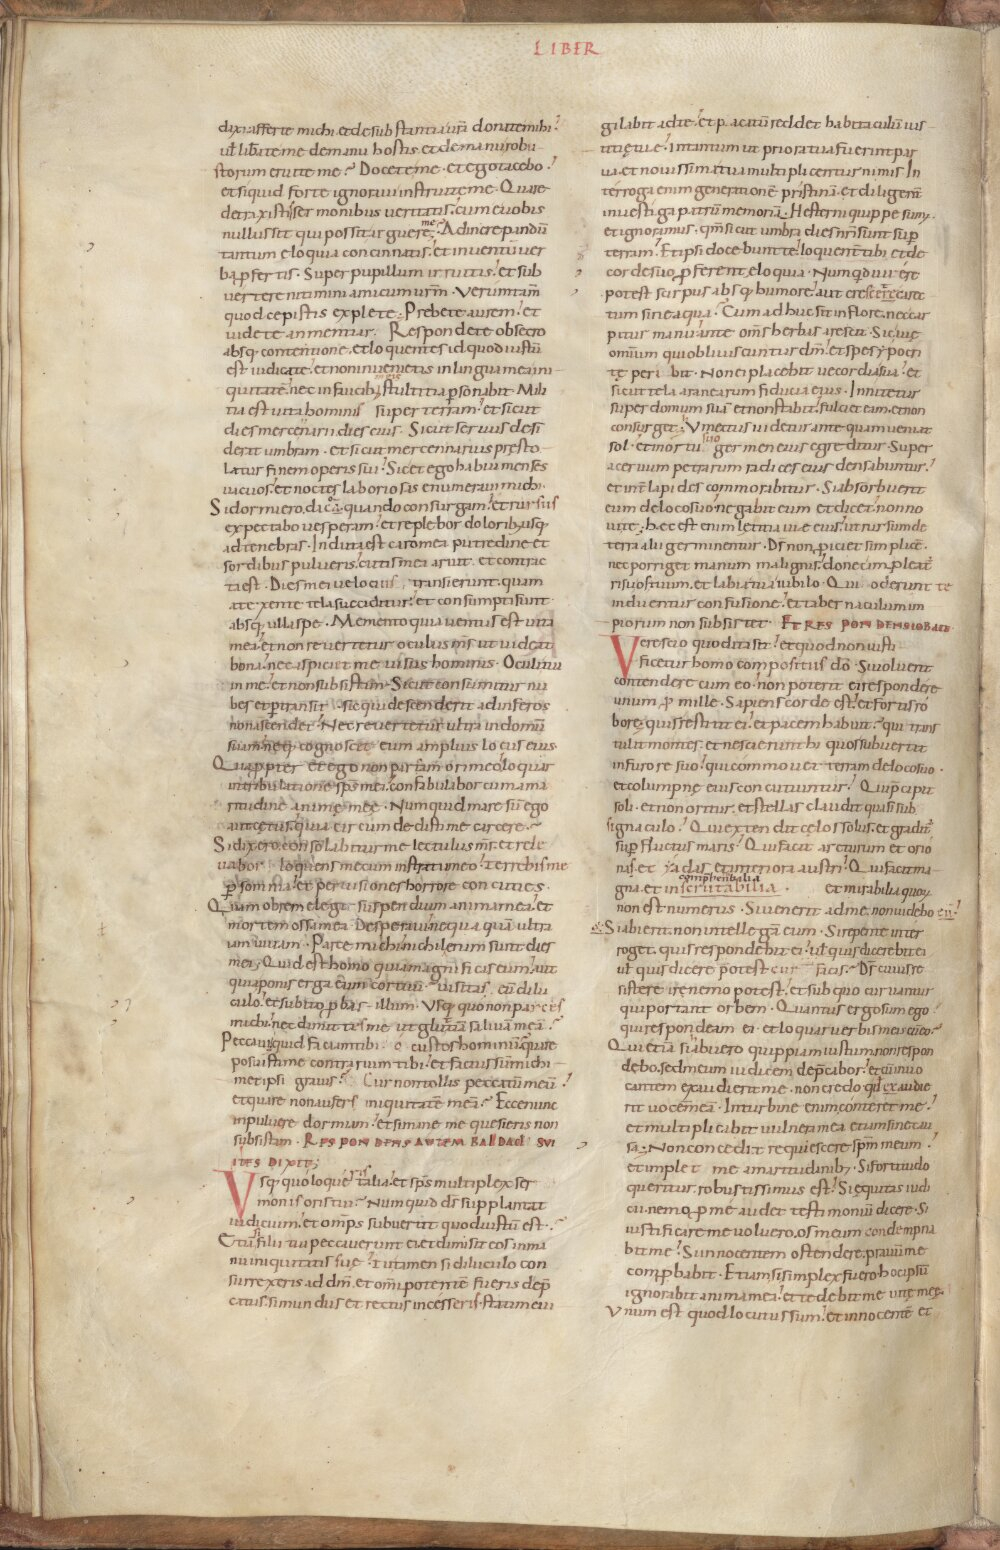 LIBER
dixi afferte michi. et de substantia urã donate mihi?
ul̃ lib̃ate me de manu hostis. et de manu robu
storum eruite me? Docete me. et ego tacebo?
et siquid forte ignoraui instruite me. Quare
detraxistis sermonibus ueritatis. cum e uobis
nullus sit qui possit arguere me? Ad increpandũ
tantum eloquia concinnatis. et in uentũ uer
ba p̱fertis. Super pupillum irruitis. et sub
uertere nitimini amicum urm̃. Verumtam̃
quod cepistis explete. Prebete aurem. et
uidete an mentiar. Respondete obsecro
absq; contentione. et loquentes id quod iustũ
est iudicate. et non inuenietis in lingua mea ini
quitatẽ. nec in faucib; meis stultitia p̱sonabit. Mili
tia est uita hominis super terram. et sicut
dies mercennarii dies eius. Sicut seruus desi
derit umbram. et sicut mercennarius presto
latur finem operis sui. Sic et ego habui menses
uacuos. et noctes laboriosas enumeraui michi.
Si dormiero. dicã quando consurgam. et rursus
expectabo uesperam. et replebor doloribus usq;
ad tenebras. Induta est caro mea putredine et
sordibus pulueris. cutis mea aruit. et contrac
ta est. Dies mei uelocius transierunt. quam
a texente tela succiditur. et consumpti sunt
absq; ulla spe. Memento quia uentus est uita
mea. et non reuertetur oculus ms̃ ut uideat
bona. nec aspiciet me uisus hominis. Oculi tui
in me. et non subsistam. Sicut consumitur nu
bes et p̱transit. sic qui descenderit ad inferos
non ascendet. Nec reuertetur ultra in domũ
suam. neq; cognoscet eum amplius locus eius.
Quap̱pter et ego non parcam ori meo. loquar
in tribulatione sps̃ mei. confabulabor cum ama
ritudine animę meę. Numquid mare sũ ego
aut cetus. quia circumdedisti me carcere.
Si dixero consolabitur me lectulus ms̃. et rele
uabor loquens mecum in stratu meo. terrebis me
p̱ somnia. et per uisiones horrore concuties.
Quam ob rem elegit suspendium anima mea. et
mortem ossa mea. Desperaui nequaquã ultra
iam uiuam. Parce michi. nichil enim sunt dies
mei. Quid est homo quia magnificas eum. aut
quia ponis erga eum cor tuũ? uisitas eũ dilu
culo. et subito p̱bas illum. Vsq; quo non parces
michi. nec dimittis me ut gluttiã saliuã meã?
Peccaui. quid faciam tibi o custos hominũ. quare
posuisti me contrarium tibi. et factus sum michi
metipsi grauis? Cur non tollis peccatũ meũ?
et quare non aufers iniquitatẽ meã? Ecce nunc
in puluere dormiam. et si mane me quesieris non
subsistam. RESPONDENS AUTEM BALDAD SUI
ITES DIXIT;
Vsq; quo loqueris talia. et sps̃ multiplex ser
monis oris tui? Numquid ds̃ supplantat
iudicium. et omp̃s subuertit quod iustũ est?
Etiã si filii tui peccauerunt ei. et dimisit eos in ma
nu iniquitatis suę. tu tamen si diluculo con
surrexeris ad dm̃. et omipotentẽ fueris dep̃
catus. si mundus et rectus incesseris. statim eui
gilabit ad te. et pacatũ reddet habitaculũ ius
titię tuę. In tantum ut priora tua fuerint par
ua. et nouissima tua multiplicentur nimis. In
terroga enim generationẽ pristinã. et diligent̃
inuestiga patrũ memoriã. Hesterni quippe sum;
et ignoramus. qm̃ sicut umbra dies nr̃i sunt sup̱
terram. Et ipsi docebunt te. loquent̃ tibi. et de
corde suo p̱ferent eloquia. Numquid uirere
potest scirpus absq; humore. aut crescere carec
tum sine aqua? Cum adhuc sit in flore. nec car
pitur manu. ante oms̃ herbas arescit. Sic uię
omnium qui obliuiscuntur dm̃. et spes ypocri
tę peribit. Non ei placebit uecordia sua. et
sicut tela aranearum fiducia ejus. Innitetur
super domum suã et non stabit. fulciet eam. et non
consurget. Vmectus uidetur antequam ueniat
sol. et in ortu suo germen eius egredietur. Super
aceruum petrarum radices eius densabuntur.
et int̃ lapides commorabitur. Si absorbuerit
eum de loco suo. negabit eum et dicet. non no
ui te. Hęc est enim lętitia uię eius. ut rursum de
terra alii germinentur. Ds̃ non p̱iciet simplicẽ.
nec porriget manum malignis. donec impleat̃
risu os tuum. et labia tua iubilo. Qui oderunt te
induentur confusione. et tabernaculum im
piorum non subsistet. ET RESPONDENS IOB AIT
Vere scio quod ita sit. et quod non iusti
ficetur homo compositus dõ. Si uoluerit
contendere cum eo. non poterit ei respondere
unum p̱ mille. Sapiens corde est. et fortis ro
bore. quis restitit ei. et pacem habuit? qui trans
tulit montes. et nescierunt hi quos subuertit
in furore suo. qui commouet terram de loco suo.
et columpnę eius concutiuntur. Qui p̃cipit
soli. et non oritur. et stellas claudit quasi sub
signaculo. Qui extendit cęlos solus. et gradit̃
sup̱ fluctus maris. Qui facit arcturum et orio
nas. et yadas. et interiora austri. Qui facit ma
gna. et incomphensibilia inscrutabilia. et mirabilia quorũ
non est numerus. Si uenerit ad me. non uidebo eũ.
Si abierit. non intellegã eum. Si repente inter
roget. quis respondebit ei. ul̃ quis dicere
ul̃ quis dicere potest cur facis? Ds̃ cuius re
sistere irę nemo potest. et sub quo curuantur
qui portant orbem. Quantus ergo sum ego
qui respondeam ei. et loquar uerbis meis cũ eo?
Qui etiã si habuero quippiam iustum. non respon
debo. sed meum iudicem dep̃cabor. et cũ inuo
cantem exaudierit me. non credo qd̃ exaudie
rit uocẽ meã. In turbine enim conteret me.
et multiplicabit uulnera mea etiam sine cau
sa. Non concedit requiescere spm̃ meum.
et implet me amaritudinib;. Si fortitudo
queritur. robustissimus est. Si equitas iudi
cii. nemo p̱ me audet testimoniũ dicere. Si
iustificare me uoluero. os meum condempna
bit me. Si innocentem ostendere. prauũ me
comp̱babit. Etiam si simplex fuero. hoc ipsũ
ignorabit anima mea. et tedebit me uitę meę.
Vnum est quod locutus sum. et innocentẽ et